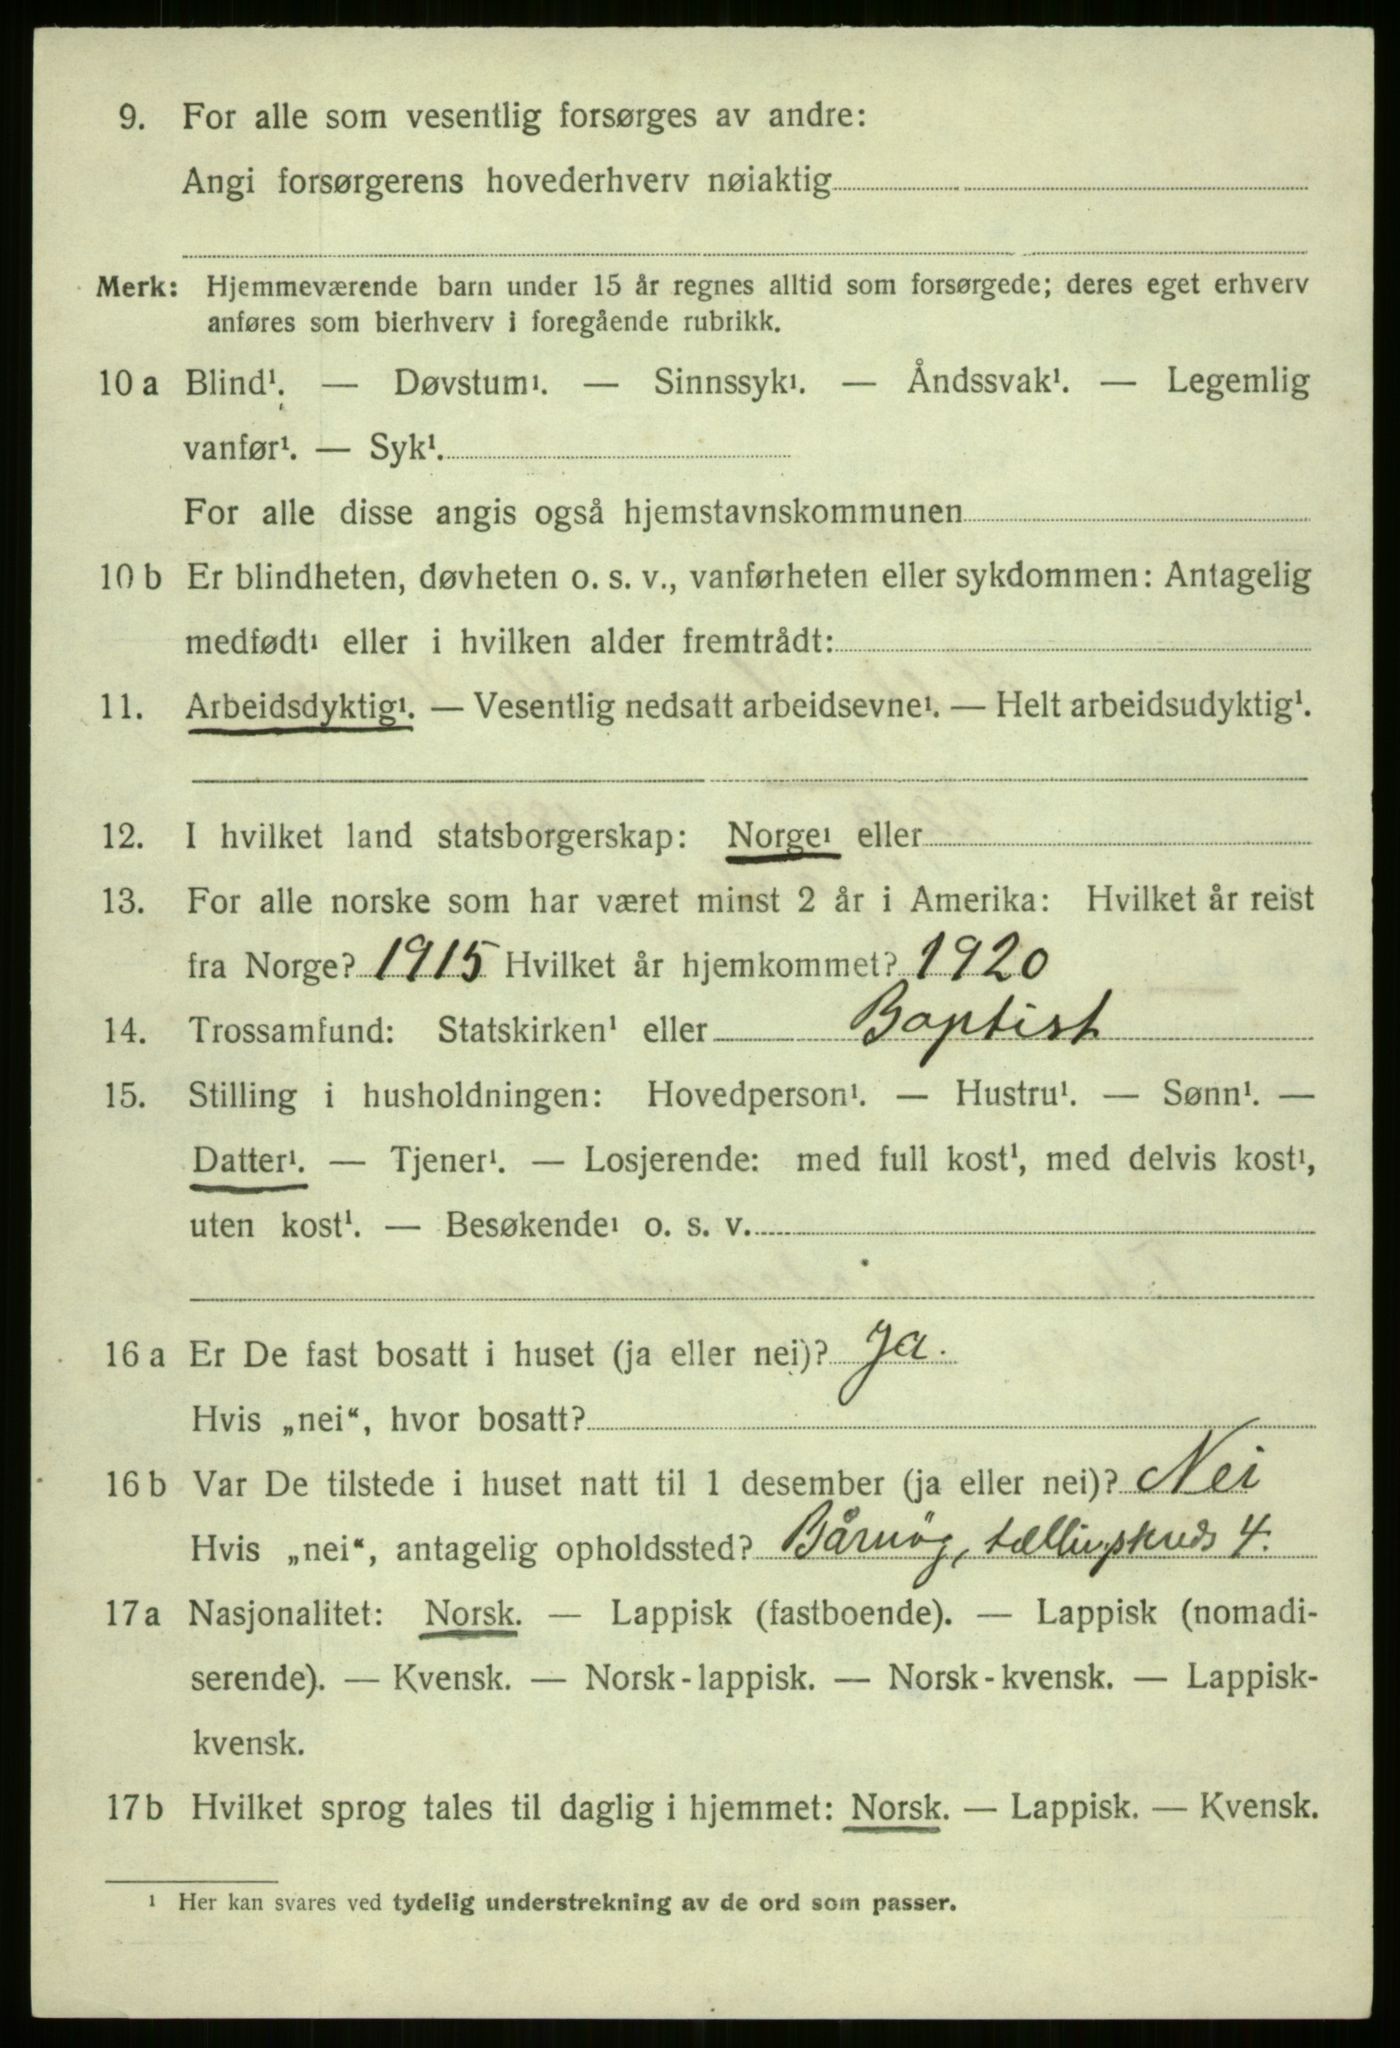 9. For alle som vesentlig forsørges av andre:
Angi forsørgerens hovederhverv nøiaktig
Merk: Hjemmeværende barn under 15 år regnes alltid som forsørgede; deres eget erhverv
anføres som bierhverv i foregående rubrikk.
10 a Blind¹. — Døvstum¹. — Sinnssyk¹. — Åndssvak¹. — Legemlig
vanfør¹. — Syk¹.
For alle disse angis også hjemstavnskommunen
10 b Er blindheten, døvheten o. s. v., vanførheten eller sykdommen: Antagelig
medfødt¹ eller i hvilken alder fremtrådt:
11. Arbeidsdyktig¹. — Vesentlig nedsatt arbeidsevne¹. — Helt arbeidsudyktig¹.
12. I hvilket land statsborgerskap: Norge¹ eller
13. For alle norske som har været minst 2 år i Amerika: Hvilket år reist
fra Norge? 1915 Hvilket år hjemkommet? 1920
14. Trossamfund: Statskirken¹ eller Baptist
15. Stilling i husholdningen: Hovedperson¹. — Hustru¹. — Sønn¹. —
Datter¹. — Tjener¹. — Losjerende: med full kost¹, med delvis kost¹,
uten kost¹. — Besøkende¹ o. s. v.
16 a Er De fast bosatt i huset (ja eller nei)? Ja.
Hvis „nei“, hvor bosatt?
16 b Var De tilstede i huset natt til 1 desember (ja eller nei)? Nei
Hvis „nei“, antagelig opholdssted? Bårnög, tællingskreds 4.
17 a Nasjonalitet: Norsk. — Lappisk (fastboende). — Lappisk (nomadi-
serende). — Kvensk. — Norsk-lappisk. — Norsk-kvensk. — Lappisk-
kvensk.
17 b Hvilket sprog tales til daglig i hjemmet: Norsk. — Lappisk. — Kvensk.
¹ Her kan svares ved tydelig understrekning av de ord som passer.